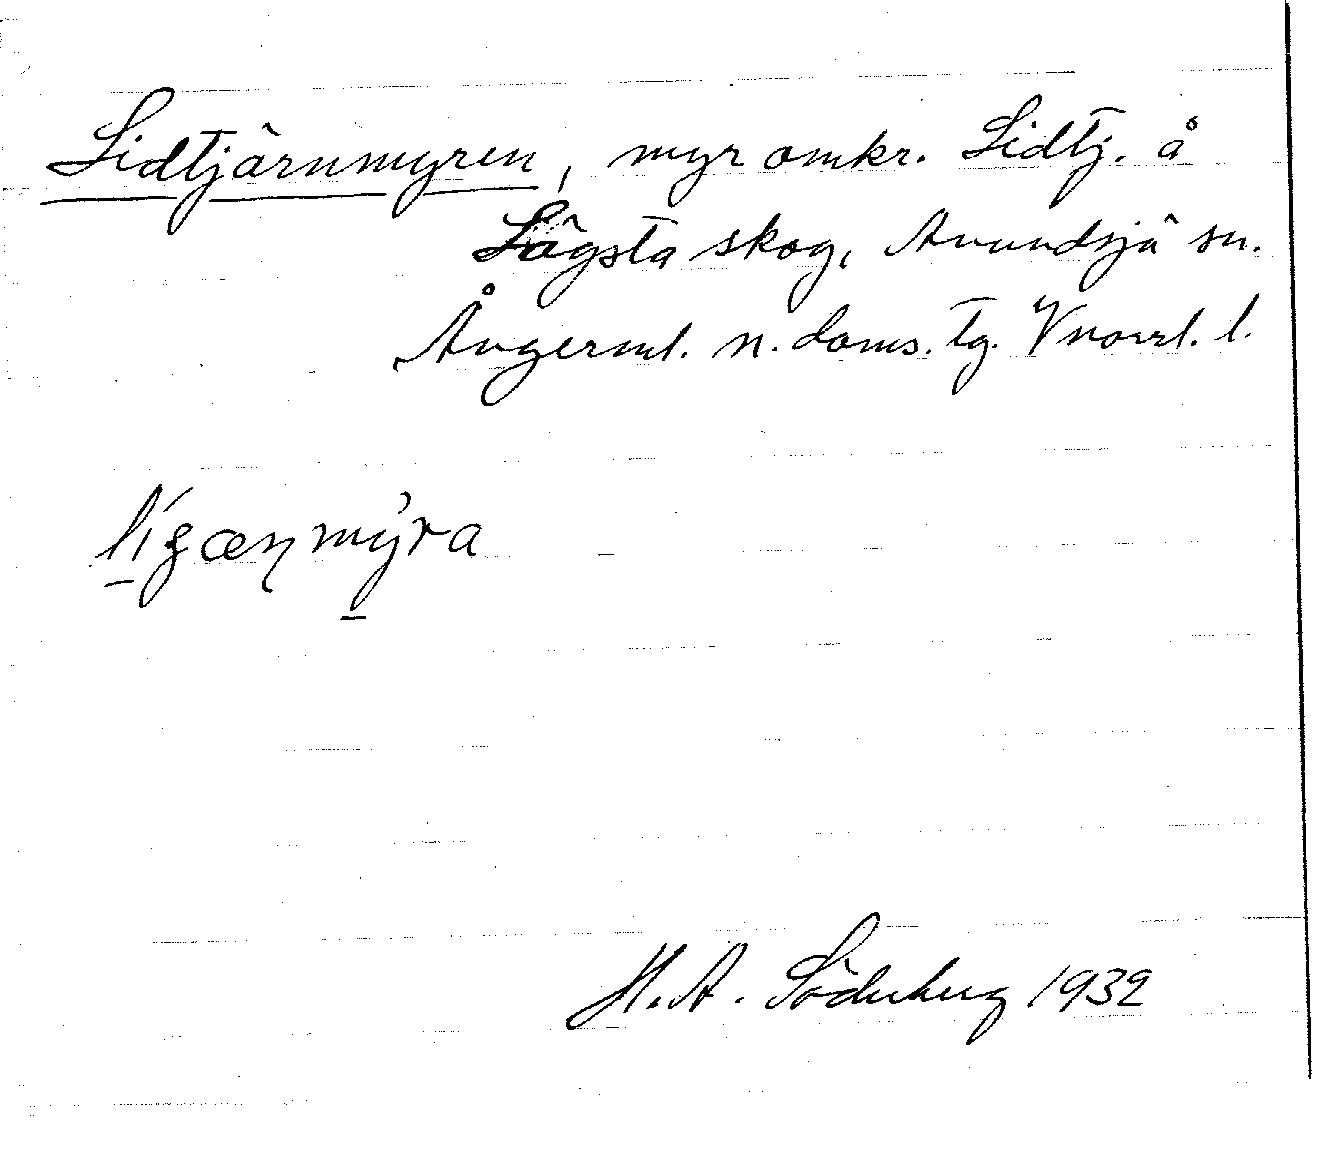 Lidtjärnmyren, myr omkr. Lidtj. å
Lögsta skog, Anundsjö sn.
Ångerml. n. doms. tg. Vnorrl. l.
H. A. Söderberg 1932